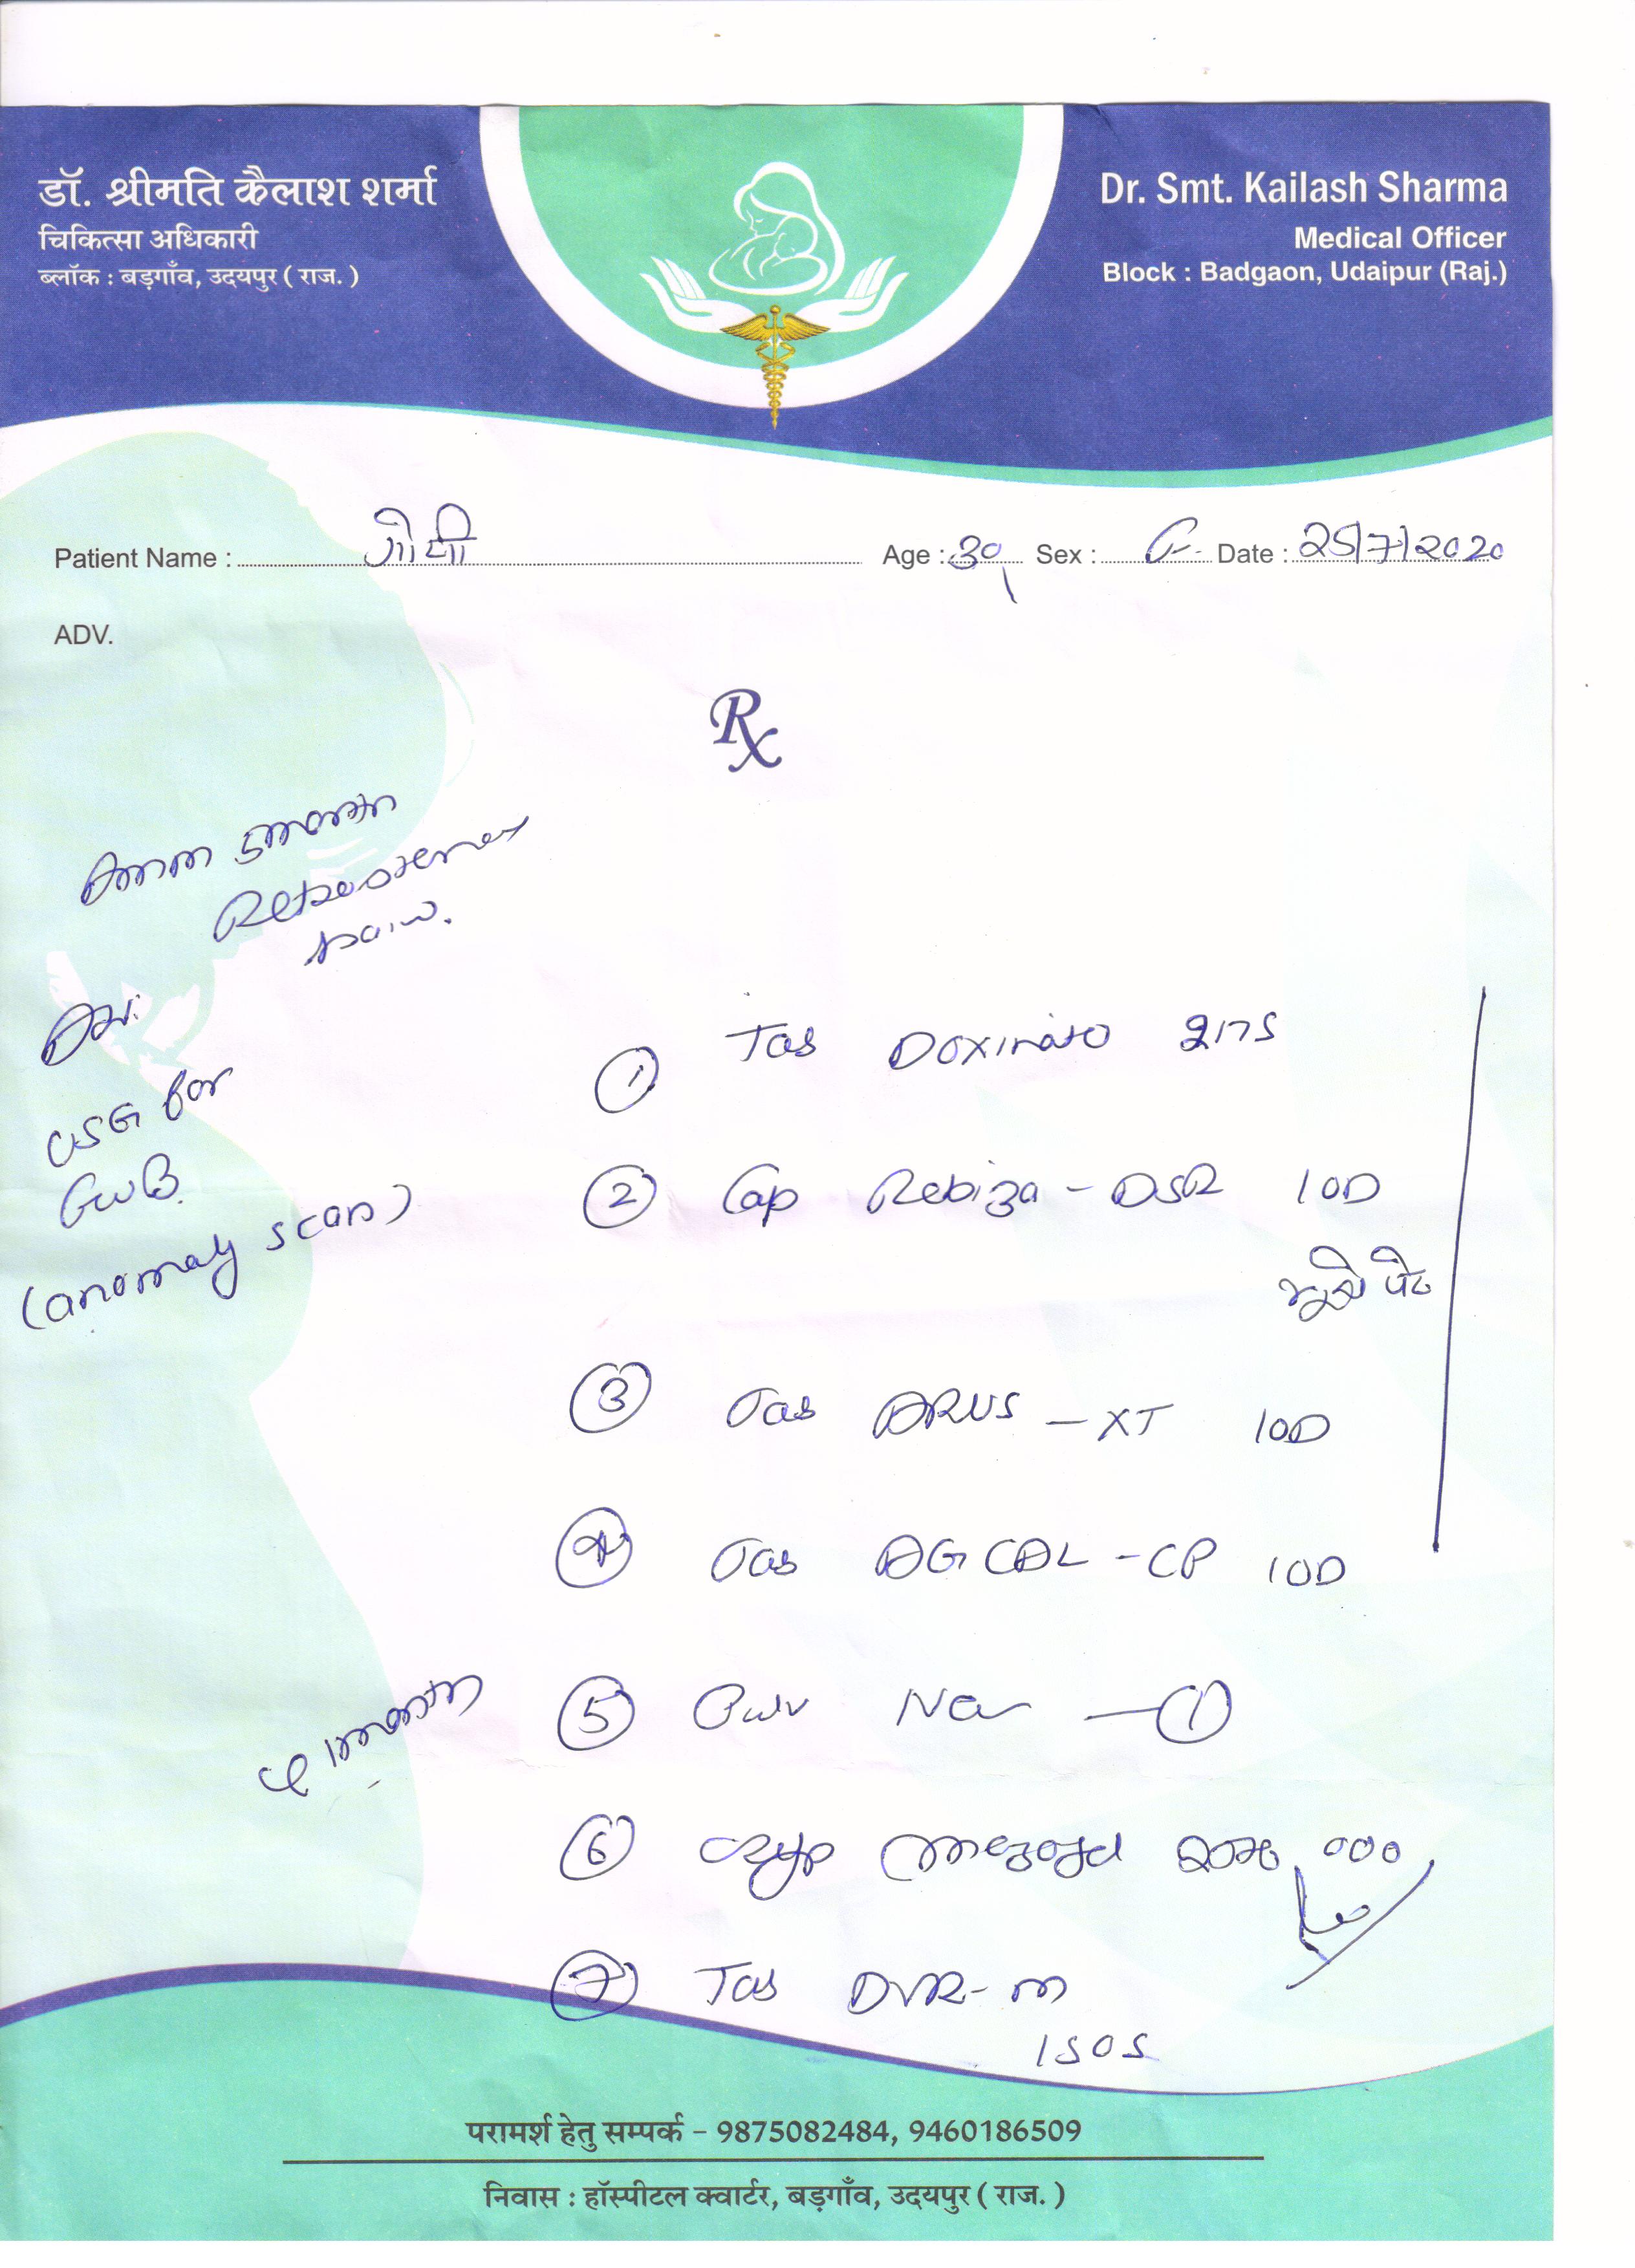 डॉ. श्रीमति कैलाश शर्मा
चिकित्सा अधिकारी
ब्लॉक : बड़गाँव, उदयपुर ( राज. )
Dr. Smt. Kailash Sharma
Medical Officer
Block : Badgaon, Udaipur (Raj.)
Patient Name : Age : 30 Sex : F Date : 25/7/2020
ADV.
Rx
5 month
pain.
USG for
FWB.
(anomaly scan)
① Tab Doxinate
② Cap Rebiza - DSR 10D
भूखे पेट
③ Tab ARUS - XT 10D
④ Tab AGCAL - CP 10D
1 month
⑤ - ①
⑥ Syp
⑦ Tab DVR - m
1 SOS
परामर्श हेतु सम्पर्क – 9875082484, 9460186509
निवास : हॉस्पीटल क्वार्टर, बड़गाँव, उदयपुर ( राज. )